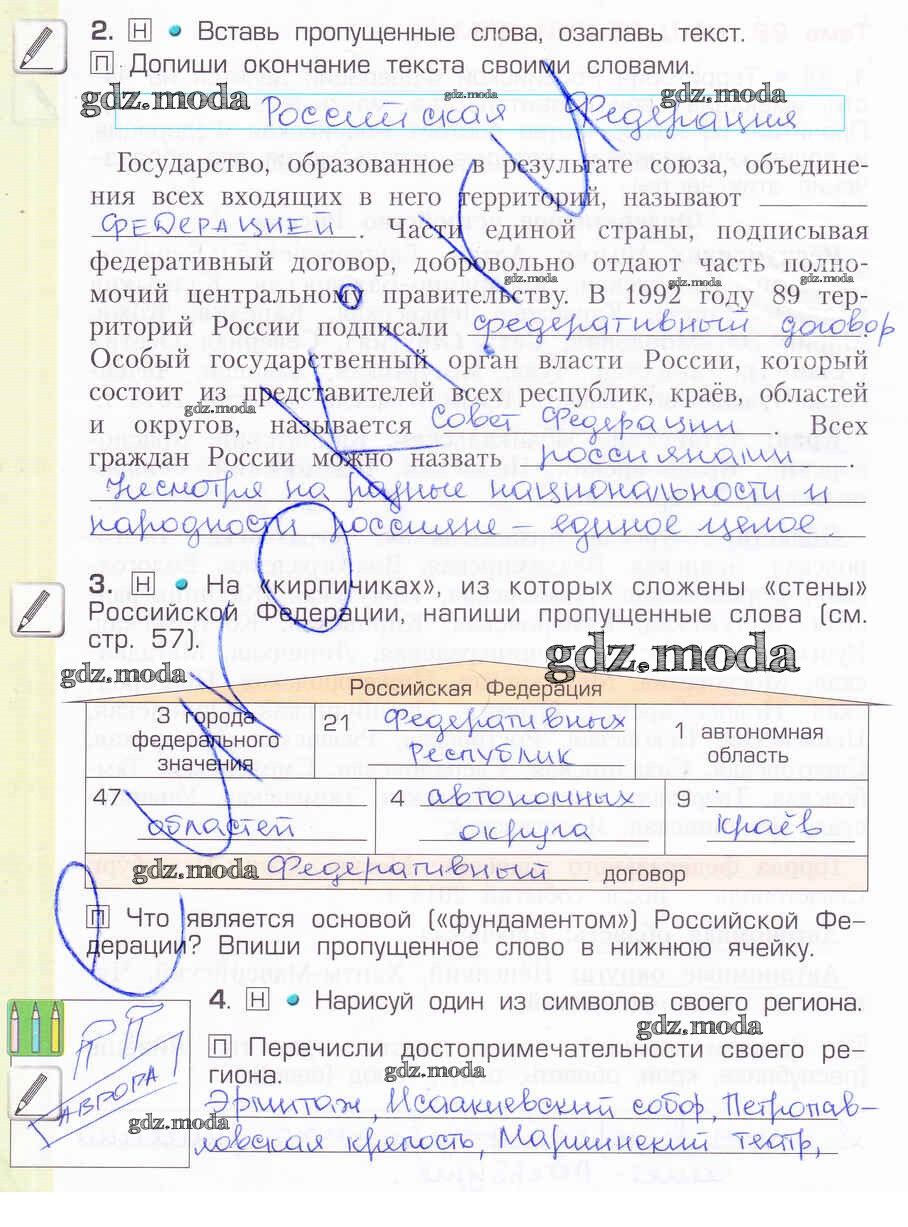 2. Н • Вставь пропущенные слова, озаглавь текст.
П Допиши окончание текста своими словами.
gdz.moda gdz.moda gdz.moda
Российская Федерация
Государство, образованное в результате союза, объедине-
ния всех входящих в него территорий, называют
ФЕДЕРАЦИЕЙ. Части единой страны, подписывая
gdz.moda
федеративный договор, добровольно отдают часть полно-
gdz.moda gdz.moda gdz.moda
мочий центральному правительству. В 1992 году 89 тер-
риторий России подписали федеративный договор
Особый государственный орган власти России, который
состоит из представителей всех республик, краёв, областей
gdz.moda
и округов, называется Совет Федерации. Всех
граждан России можно назвать россиянами.
Несмотря на разные национальности и
народности россияне – единое целое.
3. Н • На «кирпичиках», из которых сложены «стены»
Российской Федерации, напиши пропущенные слова (см.
стр. 57).
gdz.moda gdz.moda
Российская Федерация
3 города федерального значения
21 Федеративных Республик
1 автономная область
47 областей
4 автономных округа
9 краёв
gdz.moda Федеративный договор
П Что является основой («фундаментом») Российской Фе-
дерации? Впиши пропущенное слово в нижнюю ячейку.
4. Н • Нарисуй один из символов своего региона.
gdz.moda
П Перечисли достопримечательности своего ре-
гиона.
gdz.moda
АВРОРА
gdz.moda
Эрмитаж, Исаакиевский собор, Петропав-
ловская крепость, Мариинский театр,